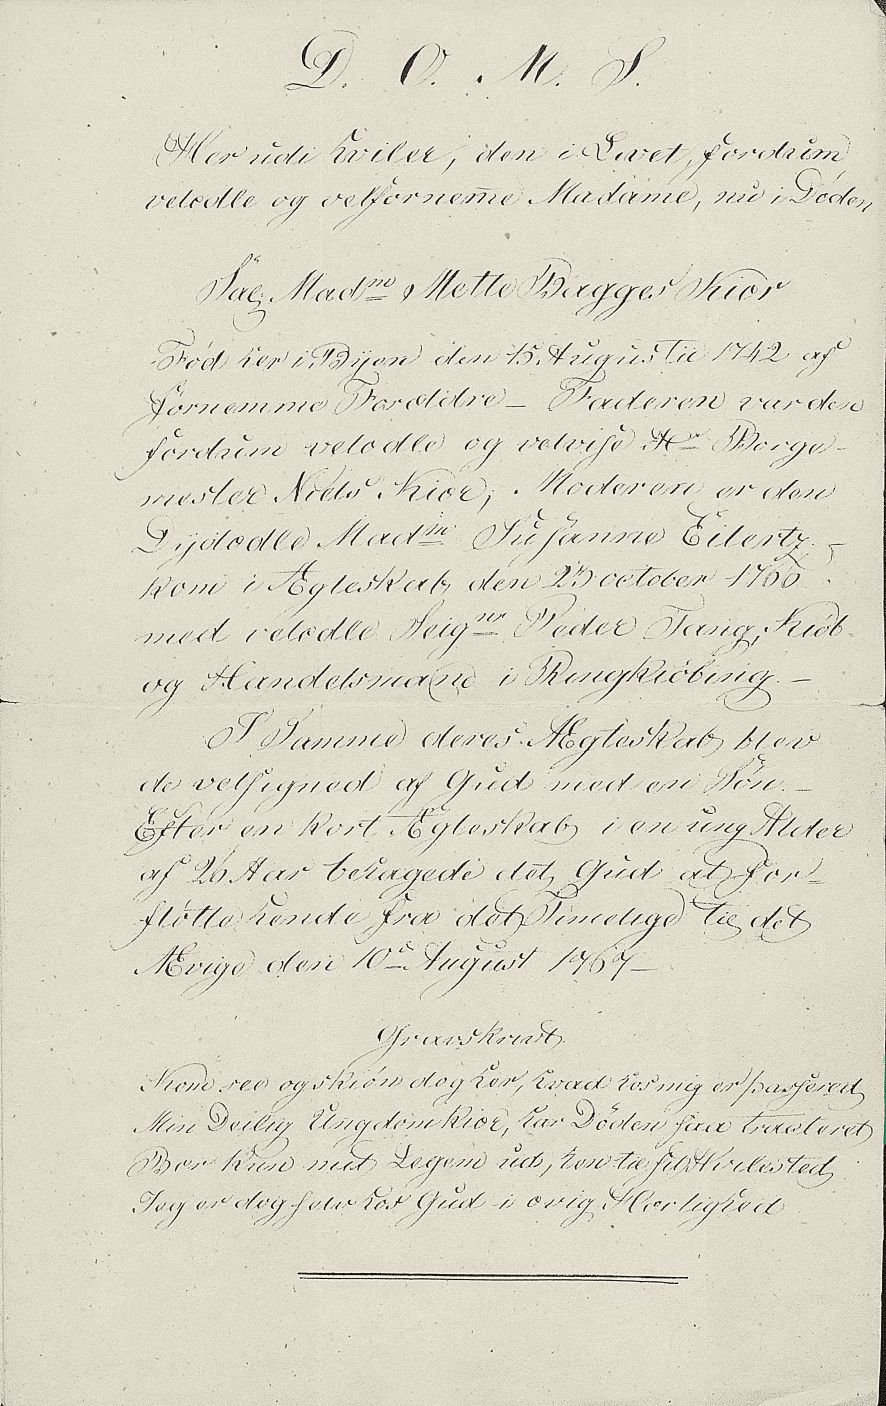 D. O. M. S.
Her udi hviler, den i Livet, fordum
velædle og velfornem̄e Madame, nu i Döden
Sal. Madm Mette Bagges Kiær
Föd her i Byen den 15 Augustii 1742 af
fornemme Forældre – Faderen var den
fordum velædle og velvise Hr Borge-
mester Niels Kiær, Moderen er den
Dydædle Madm Susanne Eilertz. –
kom i Ægteskab den October 1766.
med velædle Seignr Peder Tang, Kiöb-
og Handelsmand i Ringkiöbing. –
I Samme deres Ægteskab blev
de velsigned af Gud med en Sön. –
Efter en kort Ægteskab i en ung Alder
af Aar behagede det Gud at for-
flötte hende fra det Timelige til det
Ævige den 10de August 1767 –
Gravskrivt.
Kom see og skiön dog her, hvad hos mig er passered
Min Deilig Ungdom kiær, har Döden saa tracteret
Bær kun mit Legem ud, hen til sit Hvilested
Jeg er dog selv hos Gud i ævig Herlighed